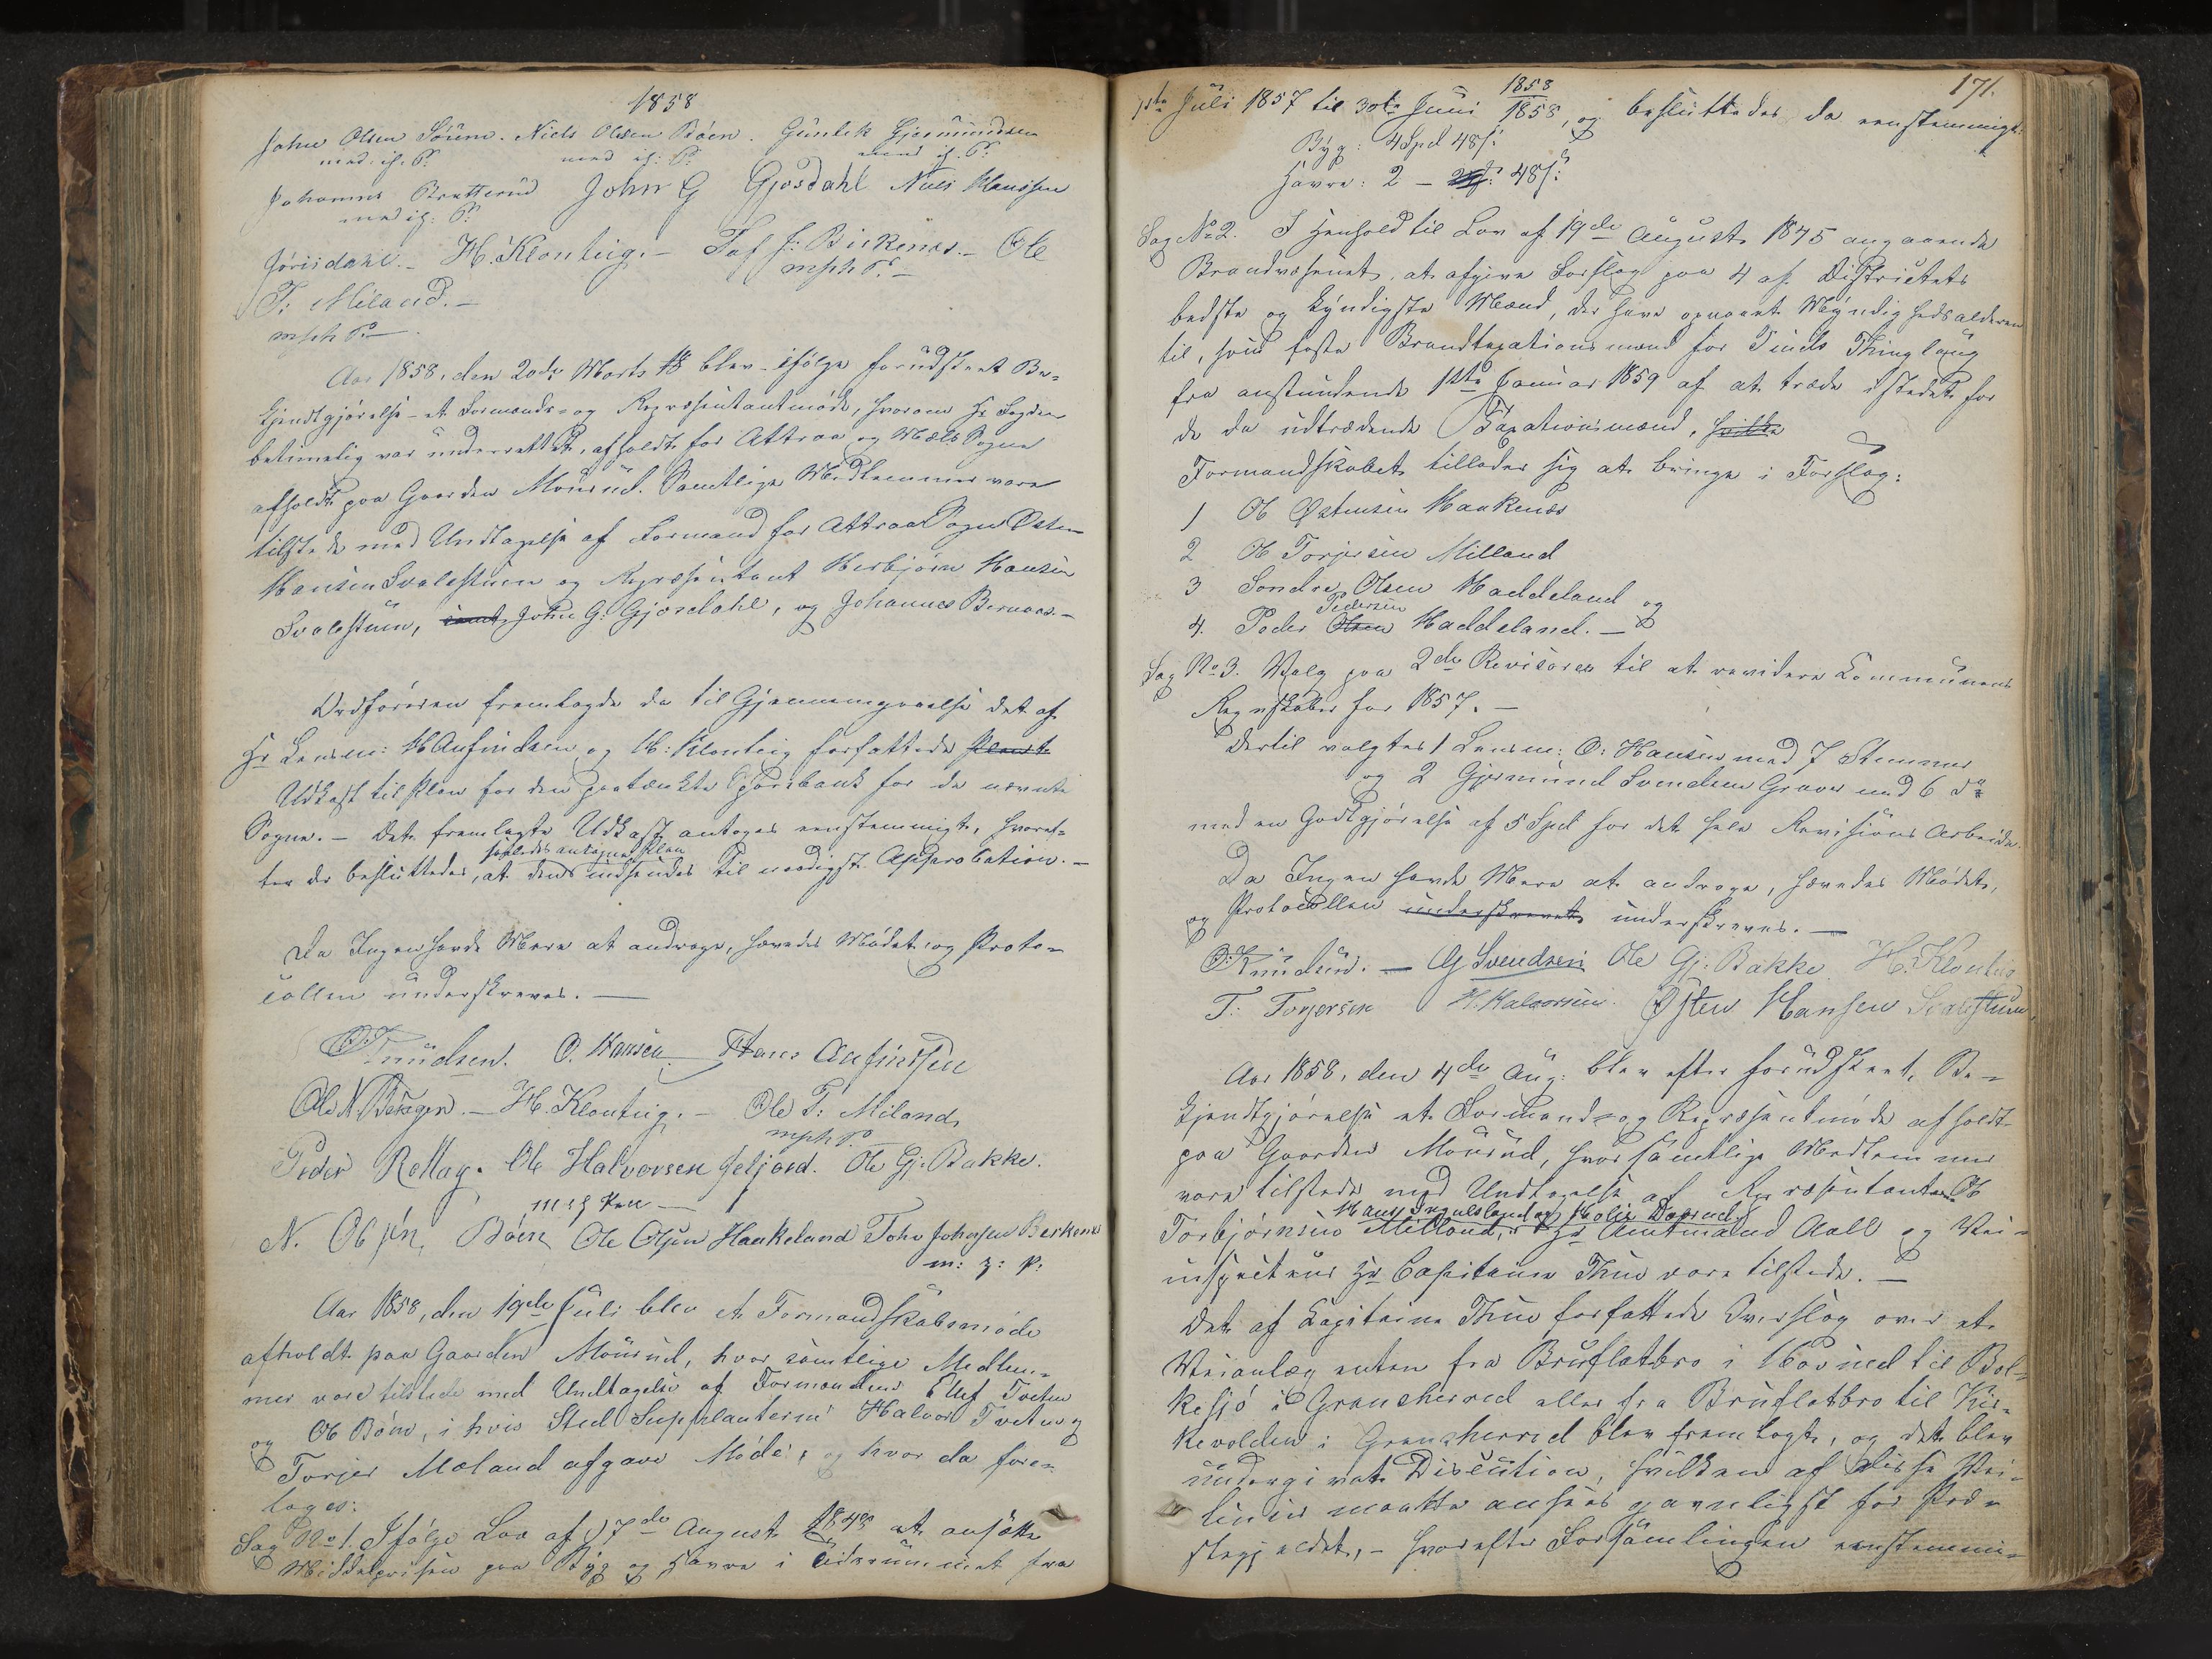 1858
John Olsen Söum. Niels Olsen Böen. Gunlek Gjermundsen
med ih: P: med ih: P: med ih: P:
Johannes Bratterud John G Gjøsdahl Niels Klausen
med ih: P:
H. Klonteig.- J: Birkenæs.- Ole
mph P.-
T: Miland.-
mph P.-
Aar 1858, den 20de Marts blev ifølge forudskeet Be-
kjendtgjørelse et Formands- og Repræsentantmøde, hvorom Hr Fogden
betimelig var underrettet, afholdt for Attraa og Mæls Sogne
afholdt paa Gaarden Mourud. Samtlige Medlemmer vare
tilstede med Undtagelse af Formand for Attraa Sogn Østen
Hansen Svalestuen og Repræsentant Herbjørn Hansen
Svalestuen, samt John G. Gjøsdahl, og Johannes Bernaas.-
Ordføreren fremlagde da til Gjennemgaaelse det af
Hr Lensm: H Anfindsen og H: Klonteig forfattede
Udkast til Plan for den paatænkte Sparebank for de nævnte
Sogne.- Det fremlagte Udkast antoges eenstemmigt, hvoref-
saaledes antagne Plan
ter der besluttedes, at den indsendes til naadigst Approbation.-
Da Ingen havde Mere at andrage, hævedes Mødet og Proto-
collen underskreves.-
O Knudsen. O. Hansen Hans Anfindsen
Ole N. Bergen.- H. Klonteig.- Ole T: Miland,
mph P.
Peder Rollag. Ole Halvorsen Seljord. Ole Gj. Bakke.
m i h Pen
N. Olsen, Böen Ole Olsen Haakeland John Johnsen Berkenæs
m: z: p:
Aar 1858, den 19de Juli blev et Formandskabsmøde
afholdt paa Gaarden Mourud, hvor samtlige Medlem-
mer vare tilstede med Undtagelse af Formændene Ellef Tveten
og Ole Böen, i hvis Sted Supplanterne Halvor Tveten og
Torjer Mæland afgave Møde; og hvor da fore-
toges:
Sag No 1. Ifølge Lov af 17de August 1848 at ansætte
Middelprisen paa Byg og Havre i Tidsrummet fra
171.
1858
1ste Juli 1857 til 30te Juni 1858, og besluttedes da eenstemmigt:
Byg: 4 Spd 48 ß:
Havre: 2 - 48 ß:
Sag No 2. I Henhold til Lov af 19de August 1845 angaaende
Brandvæsenet, at afgive Forslag paa 4 af Districtets
bedste og kyndigste Mænd, der have opnaaet Myndighedsalderen
til, som faste Brandtaxationsmænd for Tinds Thinglaug
fra anstundende 1ste Januar 1859 af at træde istedet for
de da udtrædende Taxationsmænd, hvilke
Formandskabet tillader sig at bringe i Forslag:
1 Ole Østensen Haakenæs
2 Ole Torjersen Milland
3 Sondre Olsen Haddeland og
Pedersen
4. Peder Olsen Haddeland.-
Sag No 3. Valg paa 2de Revisorer til at revidere Communens
Regnskaber for 1857.-
Dertil valgtes 1 Lensm: O: Hansen med 7 Stemmer
og 2 Gjermund Svendsen Graver med 6 do
med en Godtgjørelse af 5 Spd for det hele Revisions Arbeide.
Da Ingen havde Mere at andrage, hævedes Mødet,
og Protocollen underskrevet underskreves.-
O. Knudsen.- G Svendsen Ole Gj: Bakke H. Klonteig
T: Torjersen H. Halvorsen. Østen Hansen Svalestuen
Aar 1858, den 4de Aug: blev efter forudskeet Be-
kjendtgjørelse et Formands- og Repræsentmøde afholdt
paa Gaarden Mourud, hvor samtlige Medlemmer
vare tilstede med Undtagelse af Repræsentanterne Ole
Hans Ingulsland og
Torbjørnsen Milland, Hr Amtmand Aall og Vei-
inspecteur Hr Capitaine Thue vare tilstede.-
Det af Capitaine Thue forfattede Overslag over et
Veianlæg enten fra Bruflatbro i Hovind til Bol-
kesjø i Gransherred eller fra Bruflatbro til Kir-
kevolden i Gransherred blev fremlagt, og det blev
undergivet Discution, hvilken af disse Vei-
linier maatte ansees gavnligst for Præ-
stegjeldet,- hvorefter Forsamlingen eenstemmi-